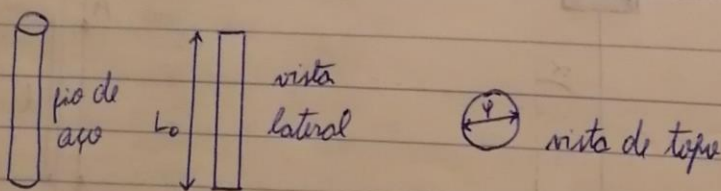 fio de
aço
L₀
vista
lateral
φ
vista de topo